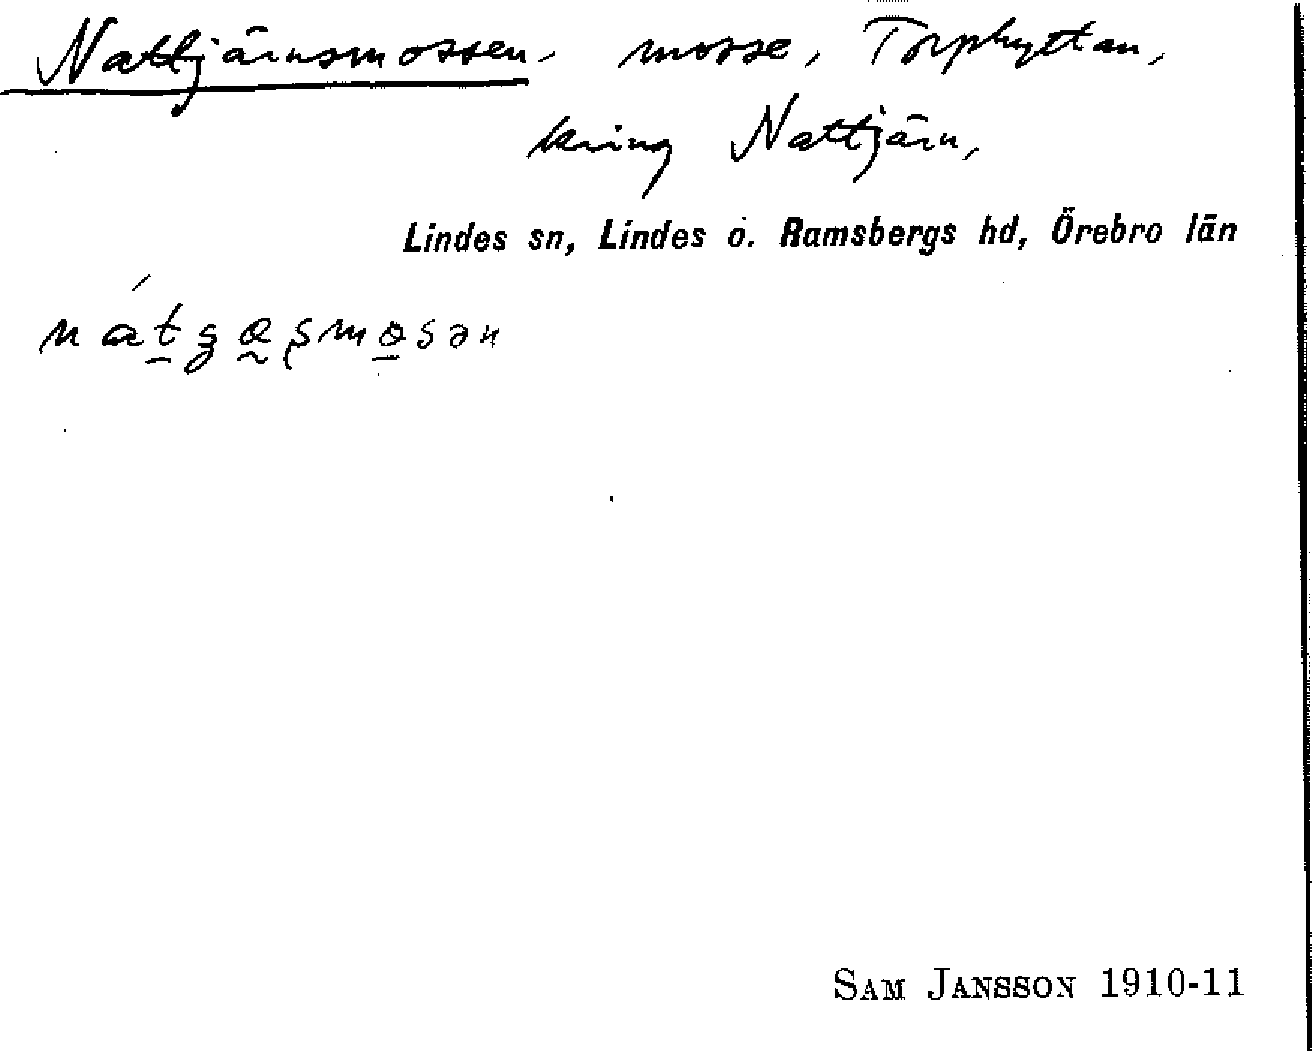 Nattjärnsmossen, mosse, Torphyttan,
kring Nattjärn,
Lindes sn, Lindes o. Ramsbergs hd, Örebro län
SAM JANSSON 1910-11